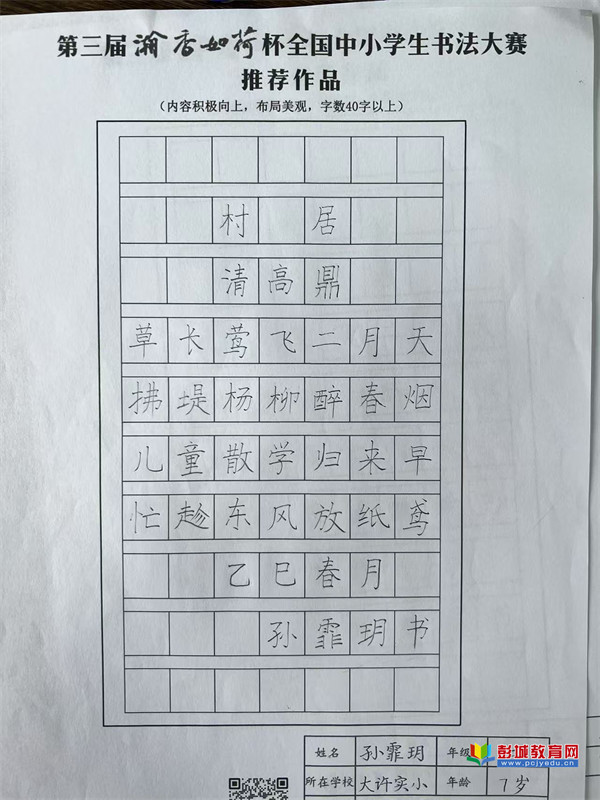 第三届瀚香如荷杯全国中小学生书法大赛
推荐作品
（内容积极向上，布局美观，字数40字以上）
村居
清高鼎
草长莺飞二月天
拂堤杨柳醉春烟
儿童散学归来早
忙趁东风放纸鸢
乙巳春月
孙霏玥书
姓名 孙霏玥 年级
所在学校 大许实小 年龄 7岁
彭城教育网
www.pcjyedu.com